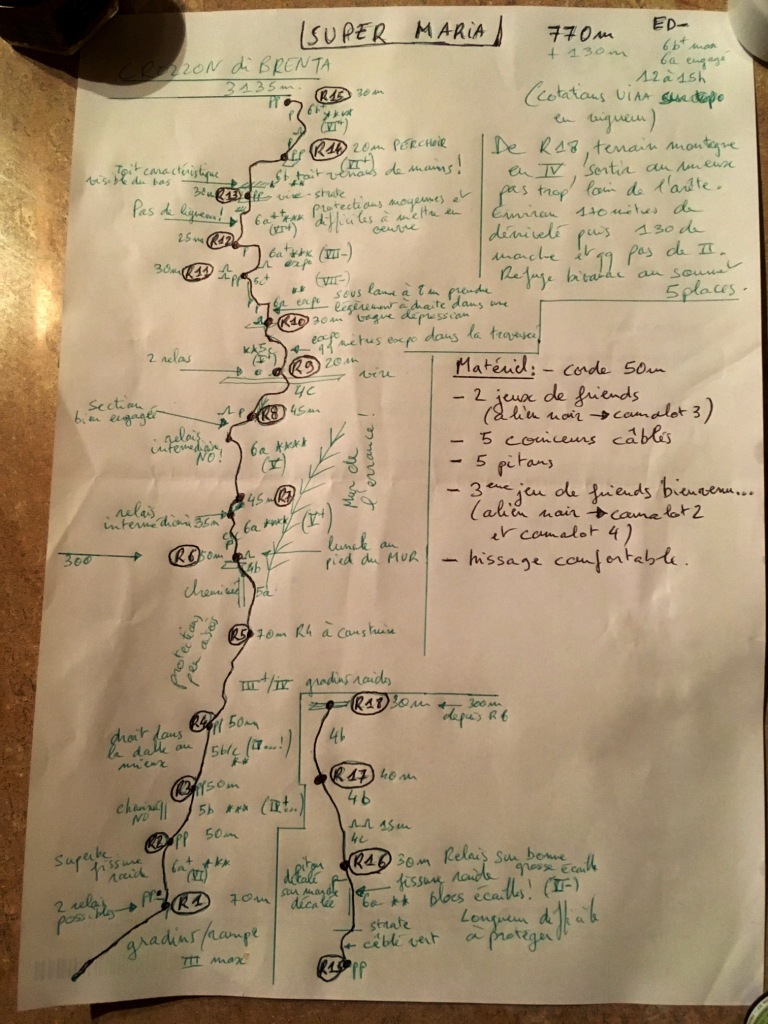 SUPER MARIA
770m
ED-
+ 130m
6b+ max
6a engagé
12 à 15h
(cotations UIAA
en vigueur)
CROZZON di BRENTA
3135m
De R18, terrain montagne
en IV, sortir au mieux
pas trop loin de l'arête.
Environ
dénivelé puis 130 de
marche et qq pas de II.
Refuge bivouac au sommet
5 places.
PP R15 30m
P 6b+ *** (VI+)
PP R14 20m PERCHOIR
(VI+)
Toit caractéristique
visible du bas
6b toit venons de mains!
30m R13 PP
vire - strate
protections moyennes et
difficiles à mettre en
oeuvre
Pas de ligneur!
6a+ **
(VI+)
25m R12 P
6a+ *** (VII-)
expo
30m R11 PP
5c+
(VII-)
**
6a expo
sous lame à 8m prendre
légèrement à droite dans une
vague dépression
R10 30m
expo
qq mètres expo dans la traversée
** 5c
2 relais
R9 20m
vire
4c
section
bien engagée
P R8 45m
relais
intermédiaire
NO!
6a ****
(V)
Mur de
l'errance!
45m R7
relais
intermédiaire 35m
6a *** (V+)
5c
P
300
R6 50m
lunule au
pied du MUR
4b
cheminée
5a
protection
peu aisée
R5 70m R4 à construire
III+/IV gradins raides
R4 PP 50m
droit dans
la dalle au
mieux
5b/c (IV...!)
**
R3 PP 50m
NO
5b *** (IV+...)
R2 PP 50m
Superbe
fissure
raide
6a+ ****
(VI)
2 relais
possibles
PP R1 70m
gradins/rampe
III max
Matériel: - corde 50m
- 2 jeux de friends
(alien noir → camalot 3)
- 5 coinceurs câblés
- 5 pitons
- 3ème jeu de friends bienvenu...
(alien noir → camalot 2
et camalot 4)
- hissage confortable.
R18 30m ← 300m
depuis R6
4b
R17 40m
4b
15m
4c
R16 30m Relais sur bonne
grosse écaille
piton
décalé
P
fissure raide
6a ** blocs écailles! (VI-)
Longueur difficile
à protéger
strate
← câble vert
R15 PP